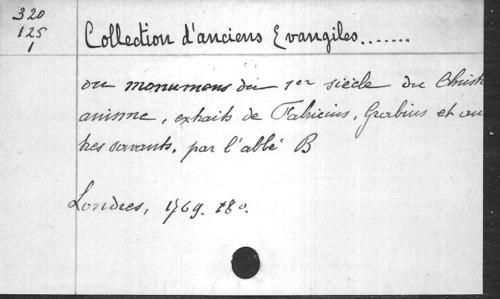 320
125
1
Collection d'anciens Evangiles.......
ou monumens du 1er siècle du Christi
anisme, extraits de Fabricius, Grabius et au
tres savants, par l'abbé B
Londres, 1769. 18o.